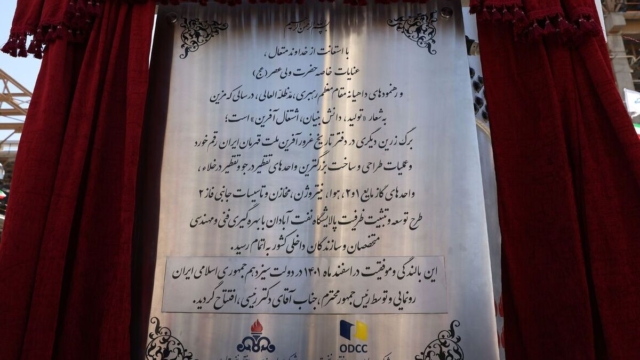 با استعانت از خداوند متعال ،
عنایات خاصه حضرت ولی عصر (عج)
و رهنمودهای داهیانه مقام معظم رهبری، مدظله العالی، در سالی که مزین
به شعار «تولید، دانش بنیان، اشتغال آفرین» است؛
برگ زرین دیگری در دفتر تاریخ غرورآفرین ملت قهرمان ایران رقم خورد
و عملیات طراحی و ساخت بزرگترین واحدهای تقطیر در جو و تقطیر در خلاء،
واحدهای گاز مایع ۱و۲، هوا، نیتروژن، مخازن و تاسیسات جانبی فاز ۲
طرح توسعه و تثبیت ظرفیت پالایشگاه نفت آبادان با بهره گیری فنی و مهندسی
متخصصان و سازندگان داخلی کشور به اتمام رسید.
این بالندگی و موفقیت در اسفند ماه ۱۴۰۱ در دولت سیزدهم جمهوری اسلامی ایران
رونمایی و توسط رئیس جمهور محترم، جناب آقای دکتر رئیسی، افتتاح گردید.
ODCC